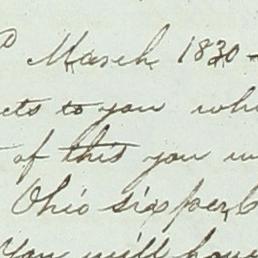 March 1830
to you
of this you
Ohio six per C
You will have